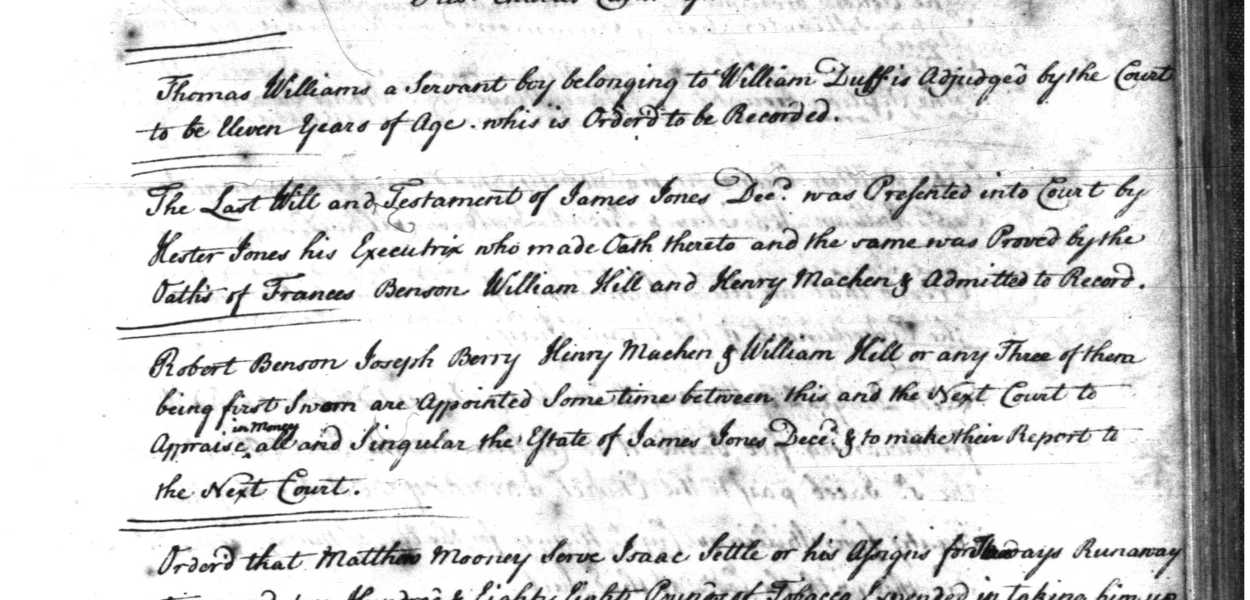 Thomas Williams a Servant boy belonging to William Duff is Adjudged by the Court
to be Eleven Years of Age. whis is Orderd to be Recorded.
The Last Will and Testament of James Jones Decd. was Presented into Court by
Hester Jones his Executrix who made Oath thereto and the same was Proved by the
Oaths of Frances Benson William Hill and Henry Machen & Admitted to Record.
Robert Benson Joseph Berry Henry Machen & William Hill or any Three of them
being first Sworn are Appointed Some time between this and the Next Court to
in Money
Appraise all and Singular the Estate of James Jones Decd. & to make their Report to
the Next Court.
Orderd that Matthew Mooney Serve Isaac Settle or his Assigns for days Runaway
Hundred & Eighty Eight Pounds of Tobacco Expended in taking him up